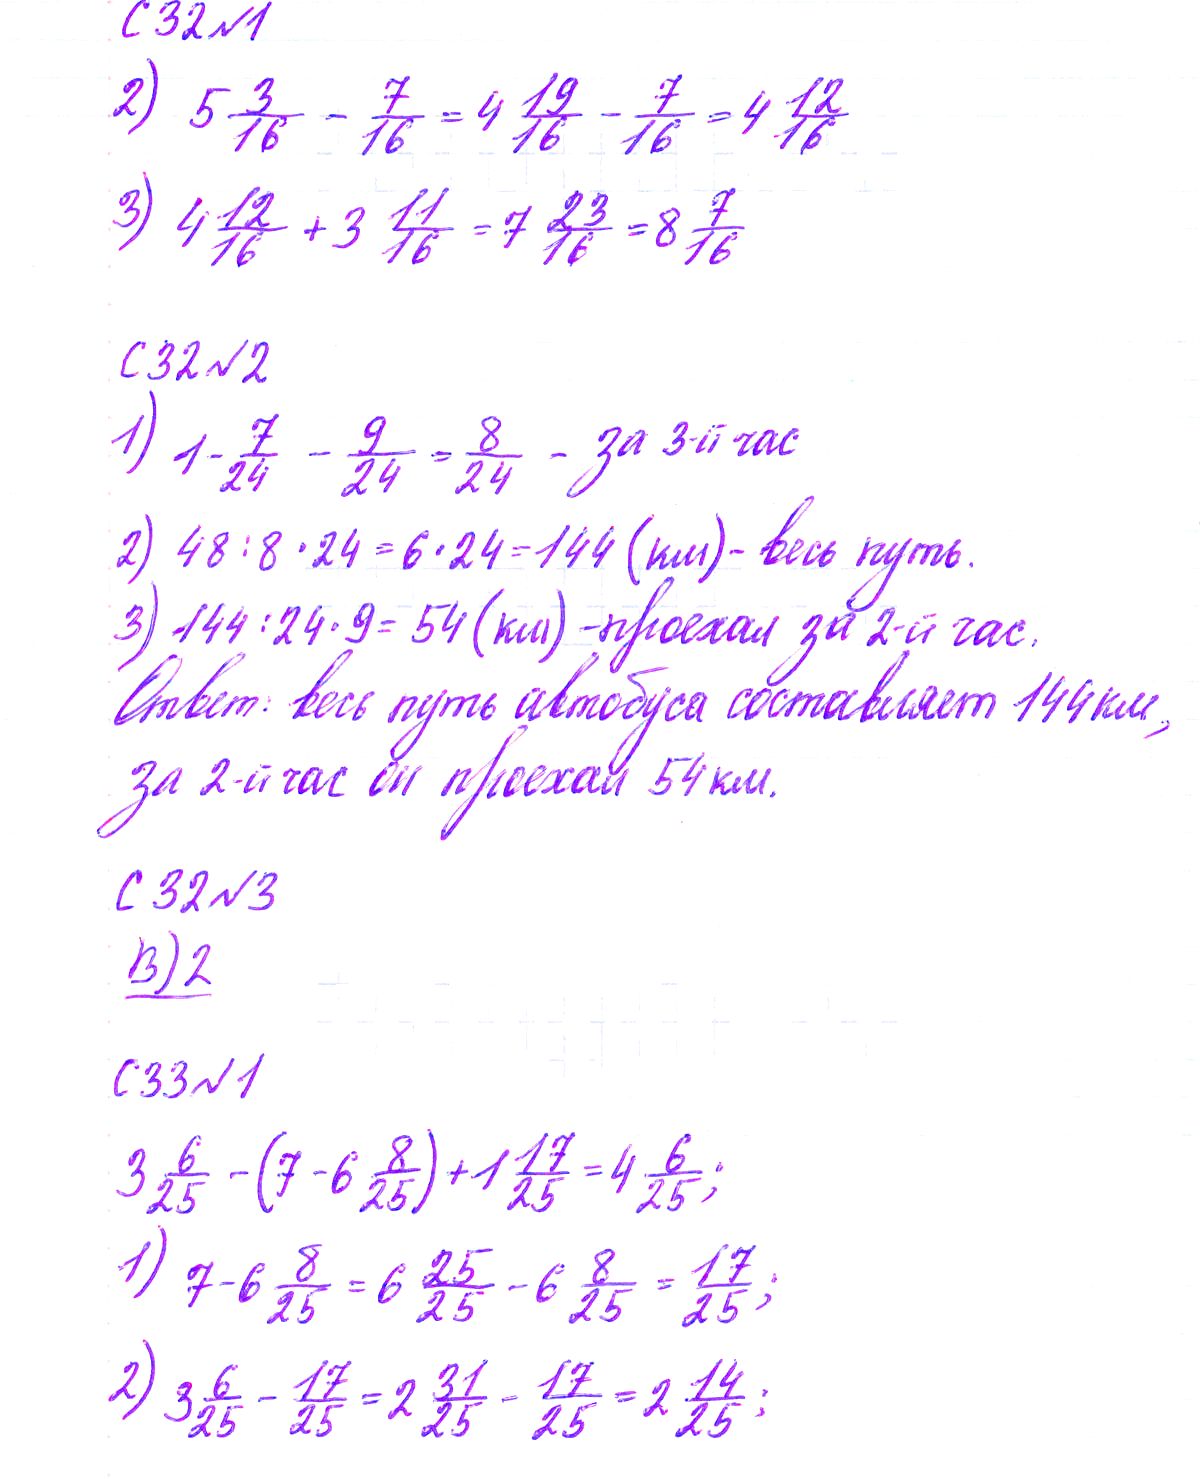 С32№1
2) 5 3/16 - 7/16 = 4 19/16 - 7/16 = 4 12/16
3) 4 12/16 + 3 11/16 = 7 23/16 = 8 7/16
С32№2
1) 1 - 7/24 - 9/24 = 8/24 - за 3-й час
2) 48:8·24=6·24=144(км)- весь путь.
3) 144:24·9=54(км)-проехал за 2-й час.
Ответ: весь путь автобуса составляет 144км,
за 2-й час он проехал 54км.
С32№3
В)2
С33№1
3 6/25 - (7 - 6 8/25) + 1 17/25 = 4 6/25;
1) 7 - 6 8/25 = 6 25/25 - 6 8/25 = 17/25;
2) 3 6/25 - 17/25 = 2 31/25 - 17/25 = 2 14/25;